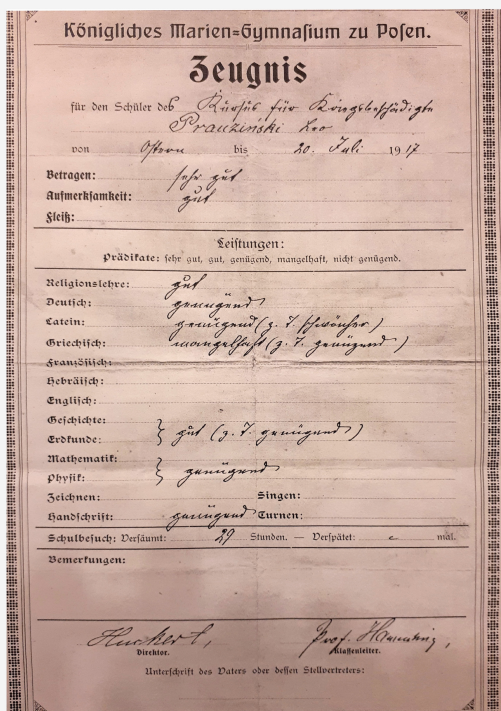 Königliches Marien=Gymnasium zu Posen.
Zeugnis
für den Schüler des Kursus für Kriegsbeschädigte
Leo
von Ostern bis 20. Juli 1917
Betragen: sehr gut
Aufmerksamkeit: gut
Fleiß:
Leistungen:
Prädikate: sehr gut, gut, genügend, mangelhaft, nicht genügend.
Religionslehre: gut
Deutsch: genügend
Latein: genügend (z. T. schwächer)
Griechisch: mangelhaft (z. T. genügend)
Französisch:
Hebräisch:
Englisch:
Geschichte:
Erdkunde: } gut (z. T. genügend)
Mathematik:
Physik: } genügend
Zeichnen: Singen:
Handschrift: genügend Turnen:
Schulbesuch: Versäumt: 29 Stunden. — Verspätet: - mal.
Bemerkungen:
Huckert, Prof.
Direktor. Klassenleiter.
Unterschrift des Vaters oder dessen Stellvertreters: